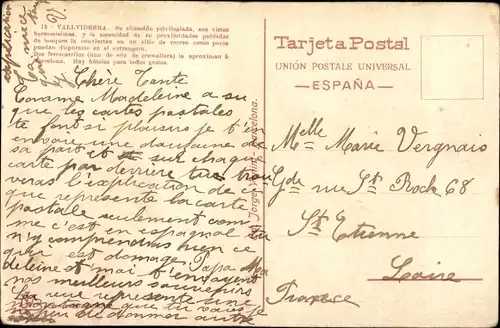 13 - VALLVIDRERA. Su situación privilegiada, sus vistas
hermosísimas, y la amenidad de su proximidades pobladas
de bosques la convierten en un sitio de recreo como pocos
puedan disputarse en el extrangero.
Dos ferrocarriles (uno de ellos de cremallera) la aproximan á
Barcelona. Hay hôteles para todos gustos.
Chère Tante
Comme Madeleine a su
que les cartes postales
te font si plaisir je t'en
envoie une douzaine de
sa part et sur chaque
carte par derrière tu trou
veras l'explication de ce
que représente la carte
postale seulement com
me c'est en espagnol tu
n'y comprendras rien ce
qui est domage. Papa Ma
deleine et moi t'envoyent
nos meilleurs souvenirs
vue représente une
que tu
de donner
explication
Jorge Barcelona.
Tarjeta Postal
UNIÓN POSTALE UNIVERSAL
—ESPAÑA—
Melle Marie Vergnais
Gde rue St Roch 68
St Etienne
Loire
France